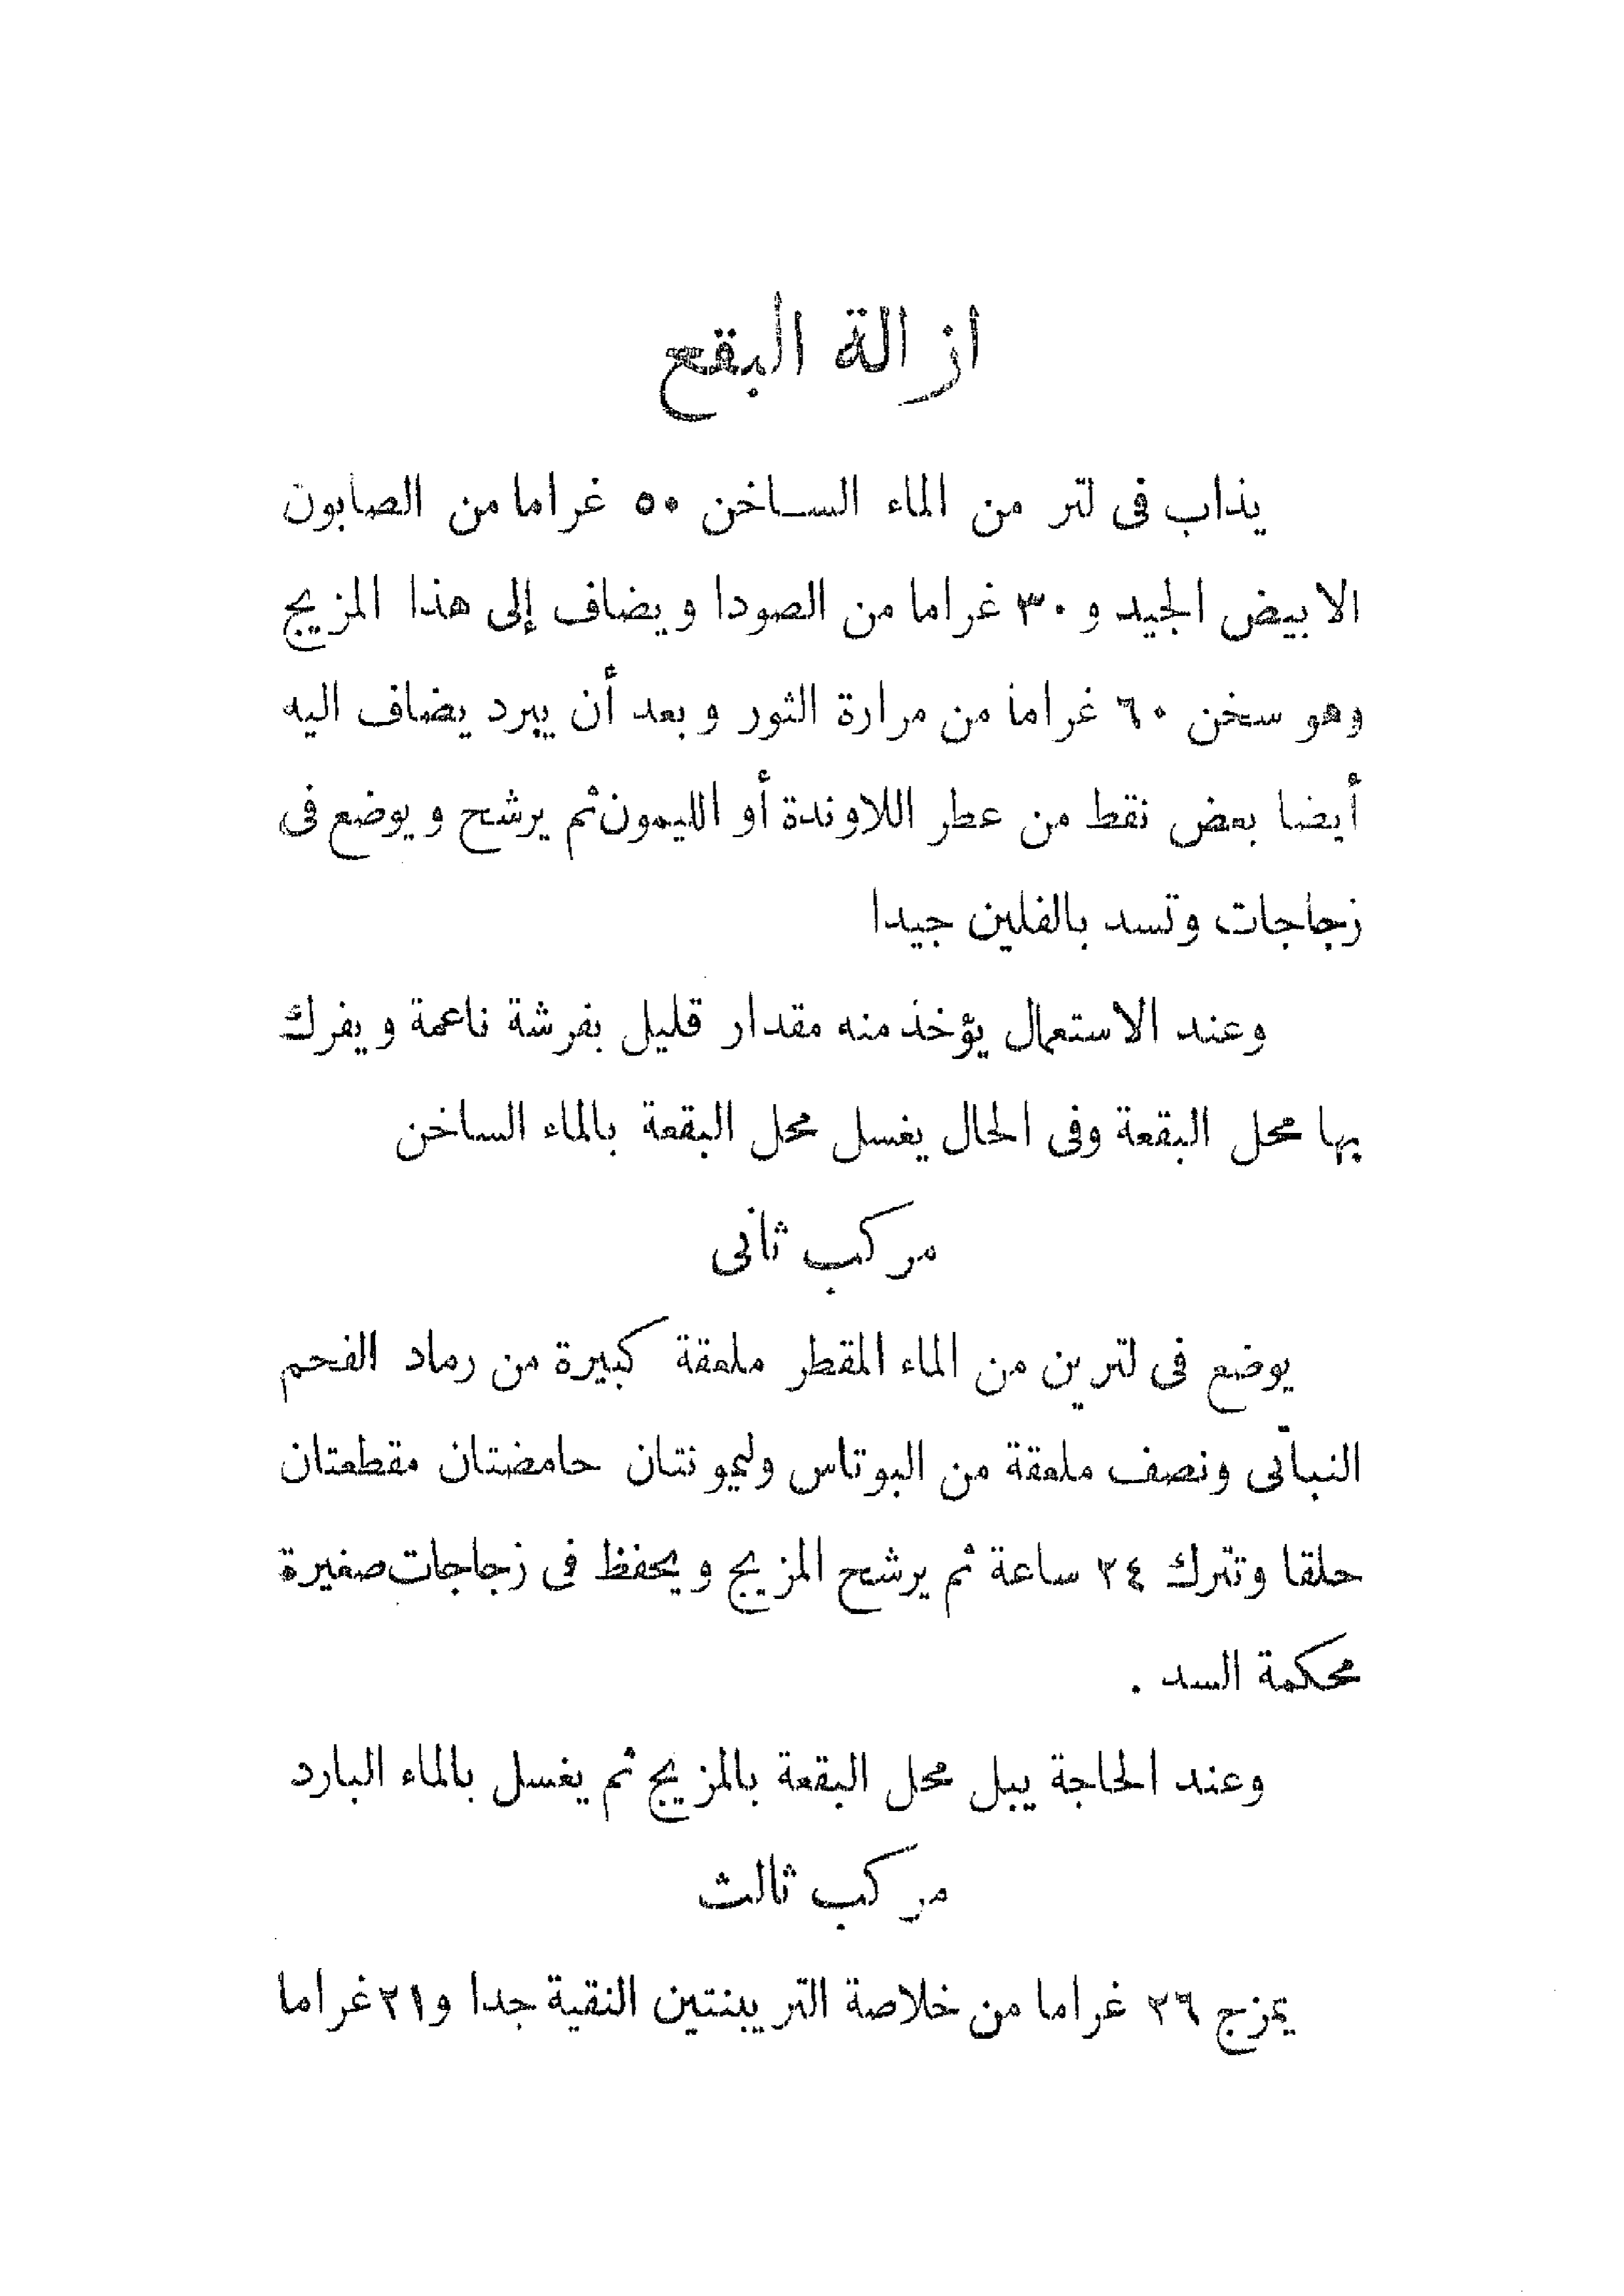 ازالة البقع
يذاب فى لتر من الماء الساخن ٥٠ غراما من الصابون
الابيض الجيد و ٣٠ غراما من الصودا ويضاف إلى هذا المزيج
وهو سخن ٦٠ غراما من مرارة الثور وبعد أن يبرد يضاف اليه
أيضا بعض نقط من عطر اللاوندة أو الليمون ثم يرشح ويوضع فى
زجاجات وتسد بالفلين جيدا
وعند الاستعمال يؤخذ منه مقدار قليل بفرشة ناعمة ويفرك
بها محل البقعة وفى الحال يغسل محل البقعة بالماء الساخن
مركب ثانى
يوضع فى لترين من الماء المقطر ملعقة كبيرة من رماد الفحم
النباتى ونصف ملعقة من البوتاس وليمونتان حامضتان مقطعتان
حلقا وتترك ٢٤ ساعة ثم يرشح المزيج ويحفظ فى زجاجات صغيرة
محكمة السد .
وعند الحاجة يبل محل البقعة بالمزيج ثم يغسل بالماء البارد
مركب ثالث
يمزج ٢٦ غراما من خلاصة التربينتين النقية جدا و٢١ غراما